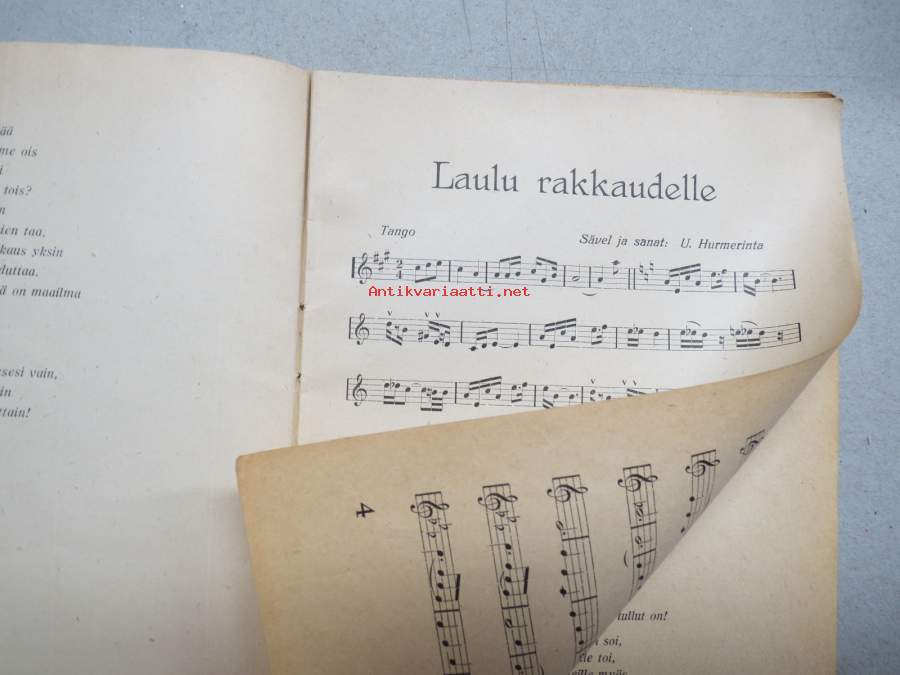 ää
me ois
i
tois?
n
ien taa,
kaus yksin
luttaa.
ä on maailma
sesi vain,
in
ttain!
Laulu rakkaudelle
Tango
Sävel ja sanat: U. Hurmerinta
2
4
Antikvariaatti.net
4
tullut on!
soi,
toi,